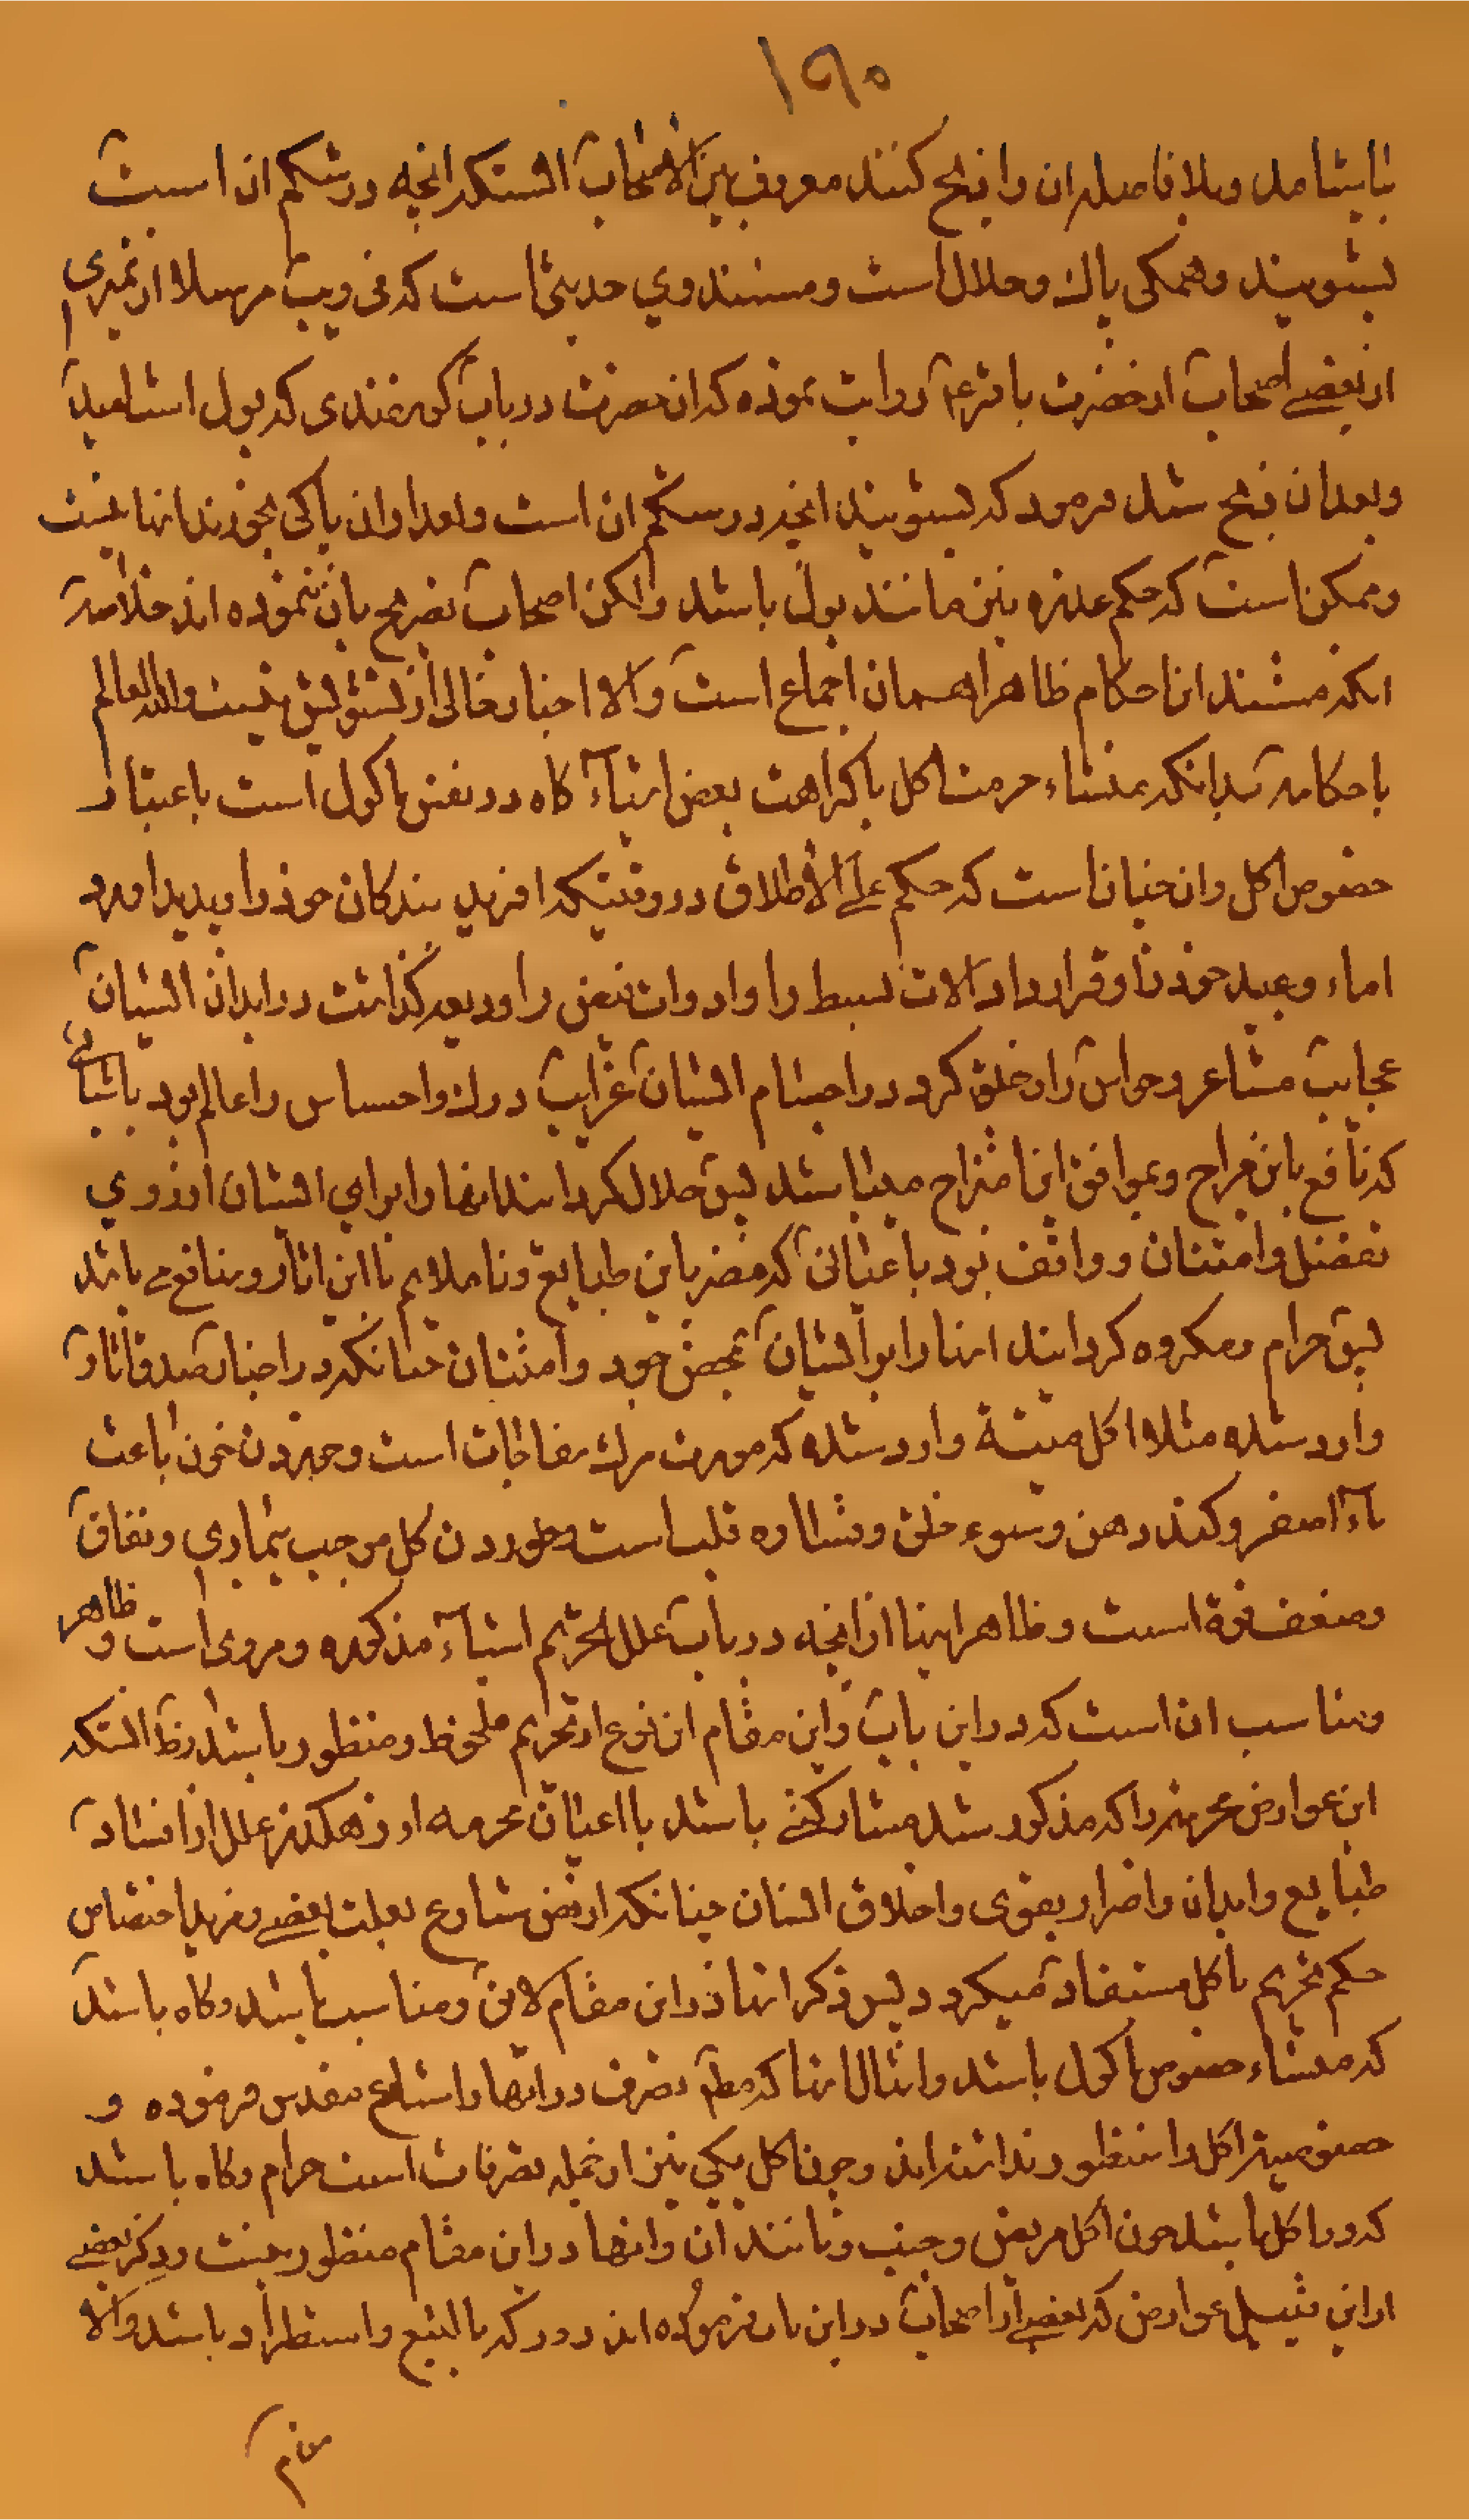 ۱۹۰
بیاشامد و بلا فاصله ان را ذبح کنند معروف بین الاصحاب انستکه انچه در شکم ان است
بشویند و همکی پاک و حلال است و مستند وی حدیثی است که مرسلا از نمیری
از بعضی اصحاب از حضرت باقر ع روایت نموده که ان حضرت در باب کوسفندی که بول اشامید
و بعد ان ذبح شد فرمود که بشویند انچه در شکم ان است و بعد از ان باکی بخوردن انها نیست
و ممکن است که حکم عذره نیز مانند بول باشد و لکن اصحاب تصریح بان ننموده اند خلاصه
انکه مستند ان احکام ظاهرا همان اجماع است و الا اخبار خالی از تشویش نیست والله العالم
باحکامه بدانکه منشاء حرمت اکل یا کراهت بعض اشیاء کاه در نفس ماکول است باعتبار
خصوص اکل و ان چنان است که حکیم علی الاطلاق در وقتیکه افرید بندکان خود را و پدید اورد
اماء و عبید خود را و قرار داد الات بسط را و ادوات قبض را و ودیعه کذاشت در ابدان ایشان
عجایب مشاعر و حواس را و خلق کرد در اجسام ایشان غرایب درک و احساس را عالم بود باشیائی
که نافع باین مزاج و موافق این امتزاج میباشد پس حلال کردانید انها را برای ایشان از روی
تفضل و امتنان و واقف بود باعیانی که مضر باین طبایع و ناملایم با این اثار و منافع می باشد
پس حرام و مکروه کردانید انها را بر ایشان بمحض جود و امتنان چنانکه در اخبار صدق اثار
وارد شده مثلا اکل میتة وارد شده که مورث مرک مفاجات است و خوردن خون باعث
ماء اصفر و کند دهن و سوء خلق و قلب است و خوردن کل موجب بیماری و نفاق
و ضعف قوة است و ظاهرا اینها از انچه در باب علل تحریم اشیاء مذکوره و مروی است و ظاهر
و مناسب ان است که در این باب و این مقام این نوع از تحریم ملحوظ و منظور باشد بلی انستکه
این عوارض محرمه را که مذکور شد مشارکتی باشد با اعیان محرمه از رهکذر علل از افساد
طبایع و ابدان و اضرار بقوی و اخلاق انسان چنانکه از نص شارع بعلت بعضی و مزید اختصاص
حکم تحریم باکل مستفاد میکردد پس ذکر انها در این مقام لایق و مناسب باشد و کاه باشد
که منشاء خصوص ماکول باشد و امثال انها که مطلق تصرف در انها را شارع مقدس فرموده و
خصوصیت اکل را منظور نداشته اند و چون اکل یکی نیز از جمله تصرفات است حرام و کاه باشد
که در اکل باشد چون اکل مریض و جنب و مانند ان و انها در این مقام منظور نیست و ذکر بعضی
از این قبیل عوارض که بعضی از اصحاب در این باب فرموده اند دور که بالتبع و استطراد باشد و الا